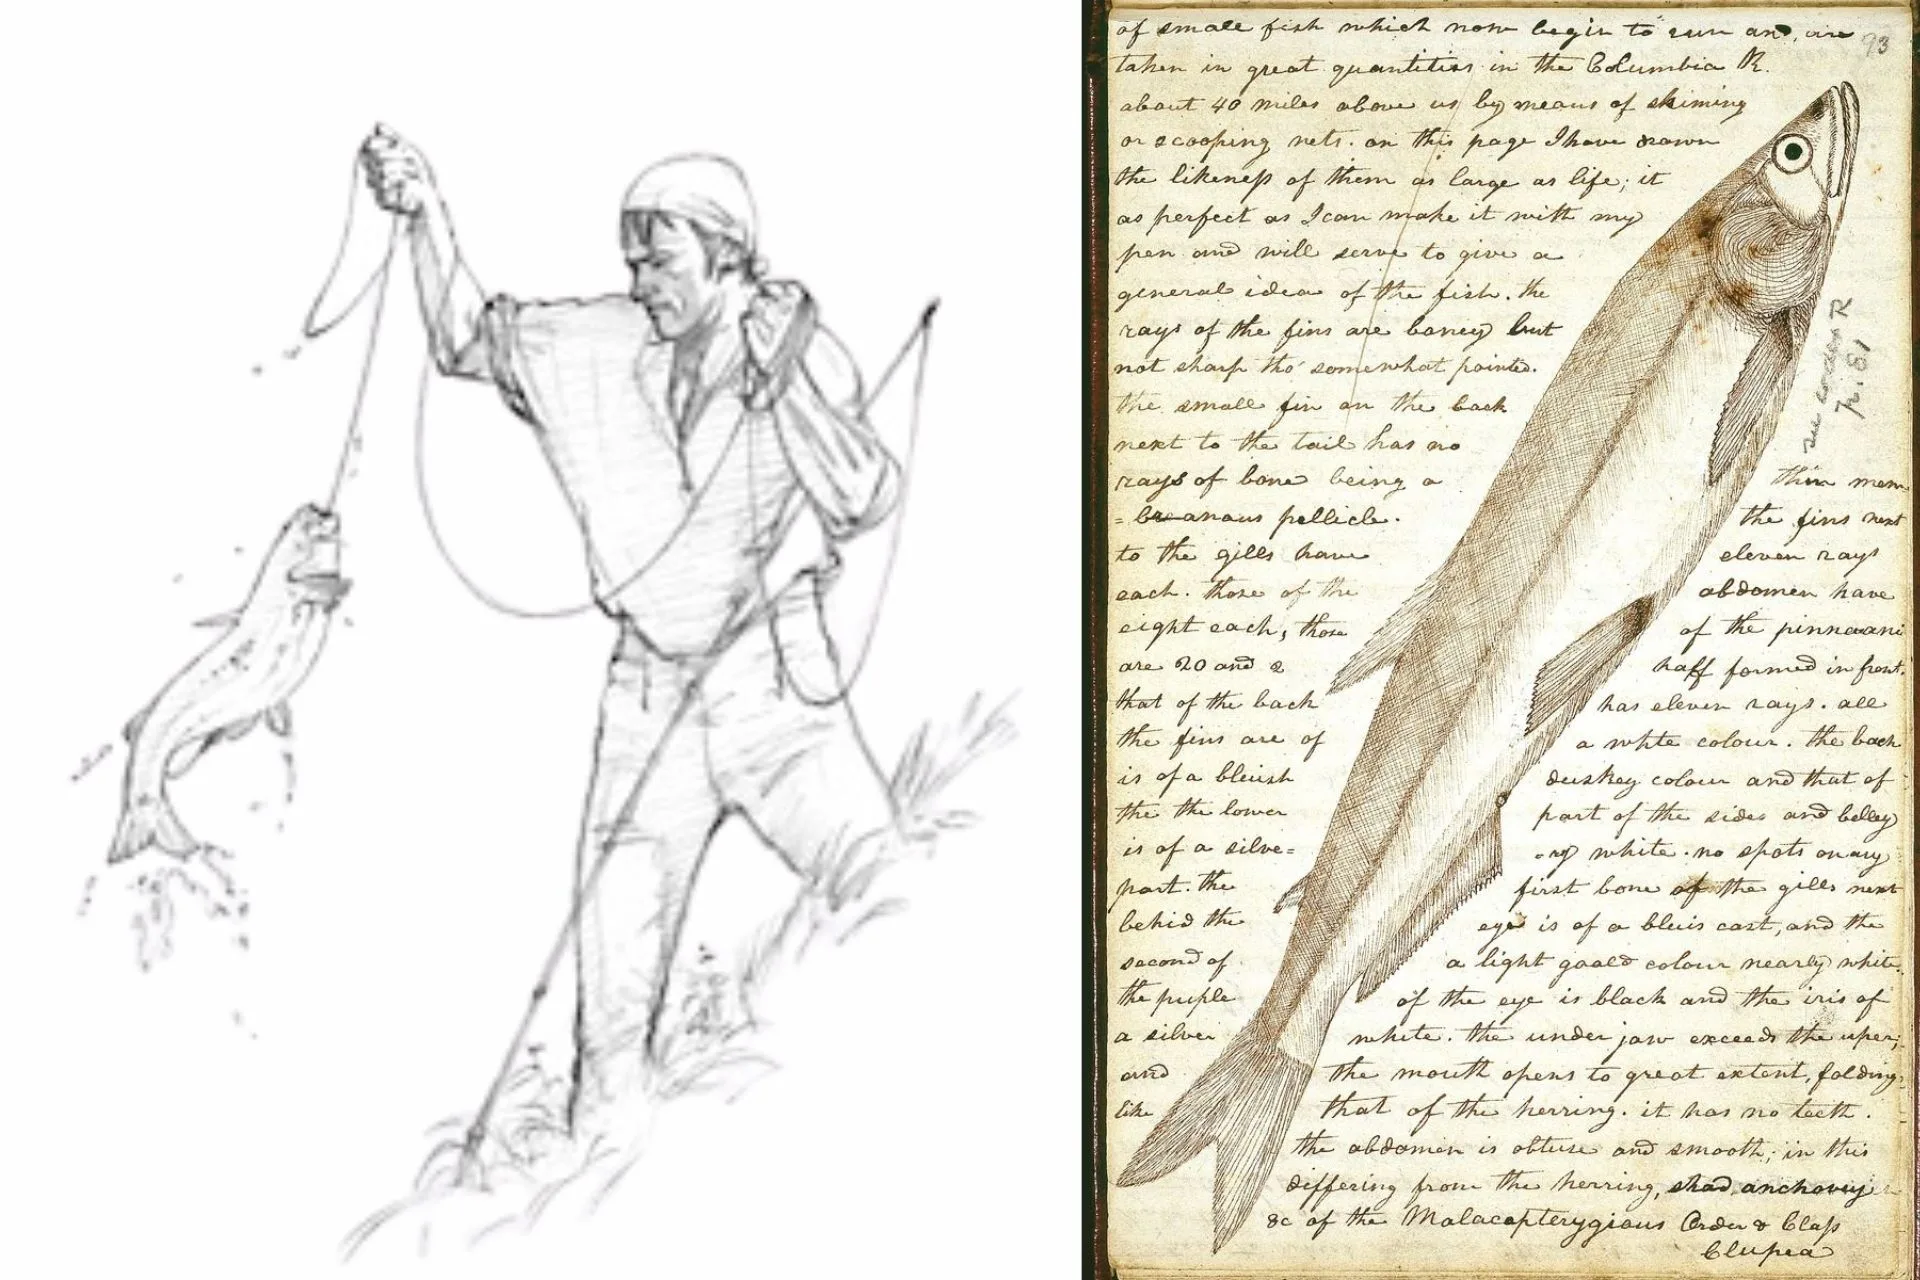 93
of small fish which now begin to run and are
taken in great quantities in the Columbia R.
about 40 miles above us by means of skiming
or scooping nets. on this page I have drawn
the likeness of them as large as life; it
as perfect as I can make it with my
pen and will serve to give a
general idea of the fish. the
rays of the fins are boney but
not sharp tho' somewhat pointed.
the small fin on the back
next to the tail has no
rays of bone being a thin mem-
=branous pellicle. the fins next
to the gills have eleven rays
each. those of the abdomen have
eight each, those of the pinnaani
are 20 and 2 haff formed in front.
that of the back has eleven rays. all
the fins are of a white colour. the back
is of a bleuish duskey colour and that of
the the lower part of the sides and belley
is of a silve= -ry white. no spots on any
part. the first bone of the gills next
behid the eye is of a bleuis cast, and the
second of a light goald colour nearly white.
the puple of the eye is black and the iris of
a silver white. the under jaw exceeds the uper;
and the mouth opens to great extent, folding
like that of the herring. it has no teeth.
the abdomen is obtuse and smooth; in this
differing from the herring, shad, anchovey
&c of the Malacopterygious Order & Class
Clupea
see R
p. 81